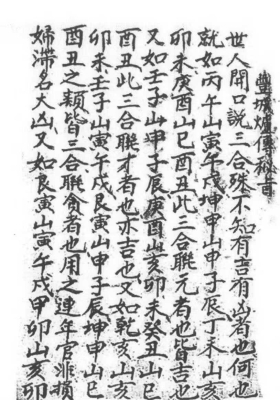 豐城傳秘旨
世人開口說三合殊不知有吉有凶者也何也
就如丙午山寅午戌坤申山申子辰丁未山亥
卯未庚酉山巳酉丑此三合聯元者也皆吉也
又如壬子山申子辰庚酉山亥卯未癸丑山巳
酉丑此三合聯才者也亦吉也又如乾亥山亥
卯未壬子山寅午戌艮寅山申子辰坤申山巳
酉丑之類皆三合聯食者也用之連年官非損
婦滯名大凶又如艮寅山寅午戌甲卯山亥卯